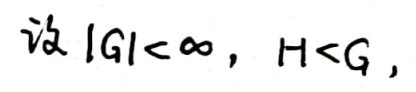 设 |G|<∞, H<G,